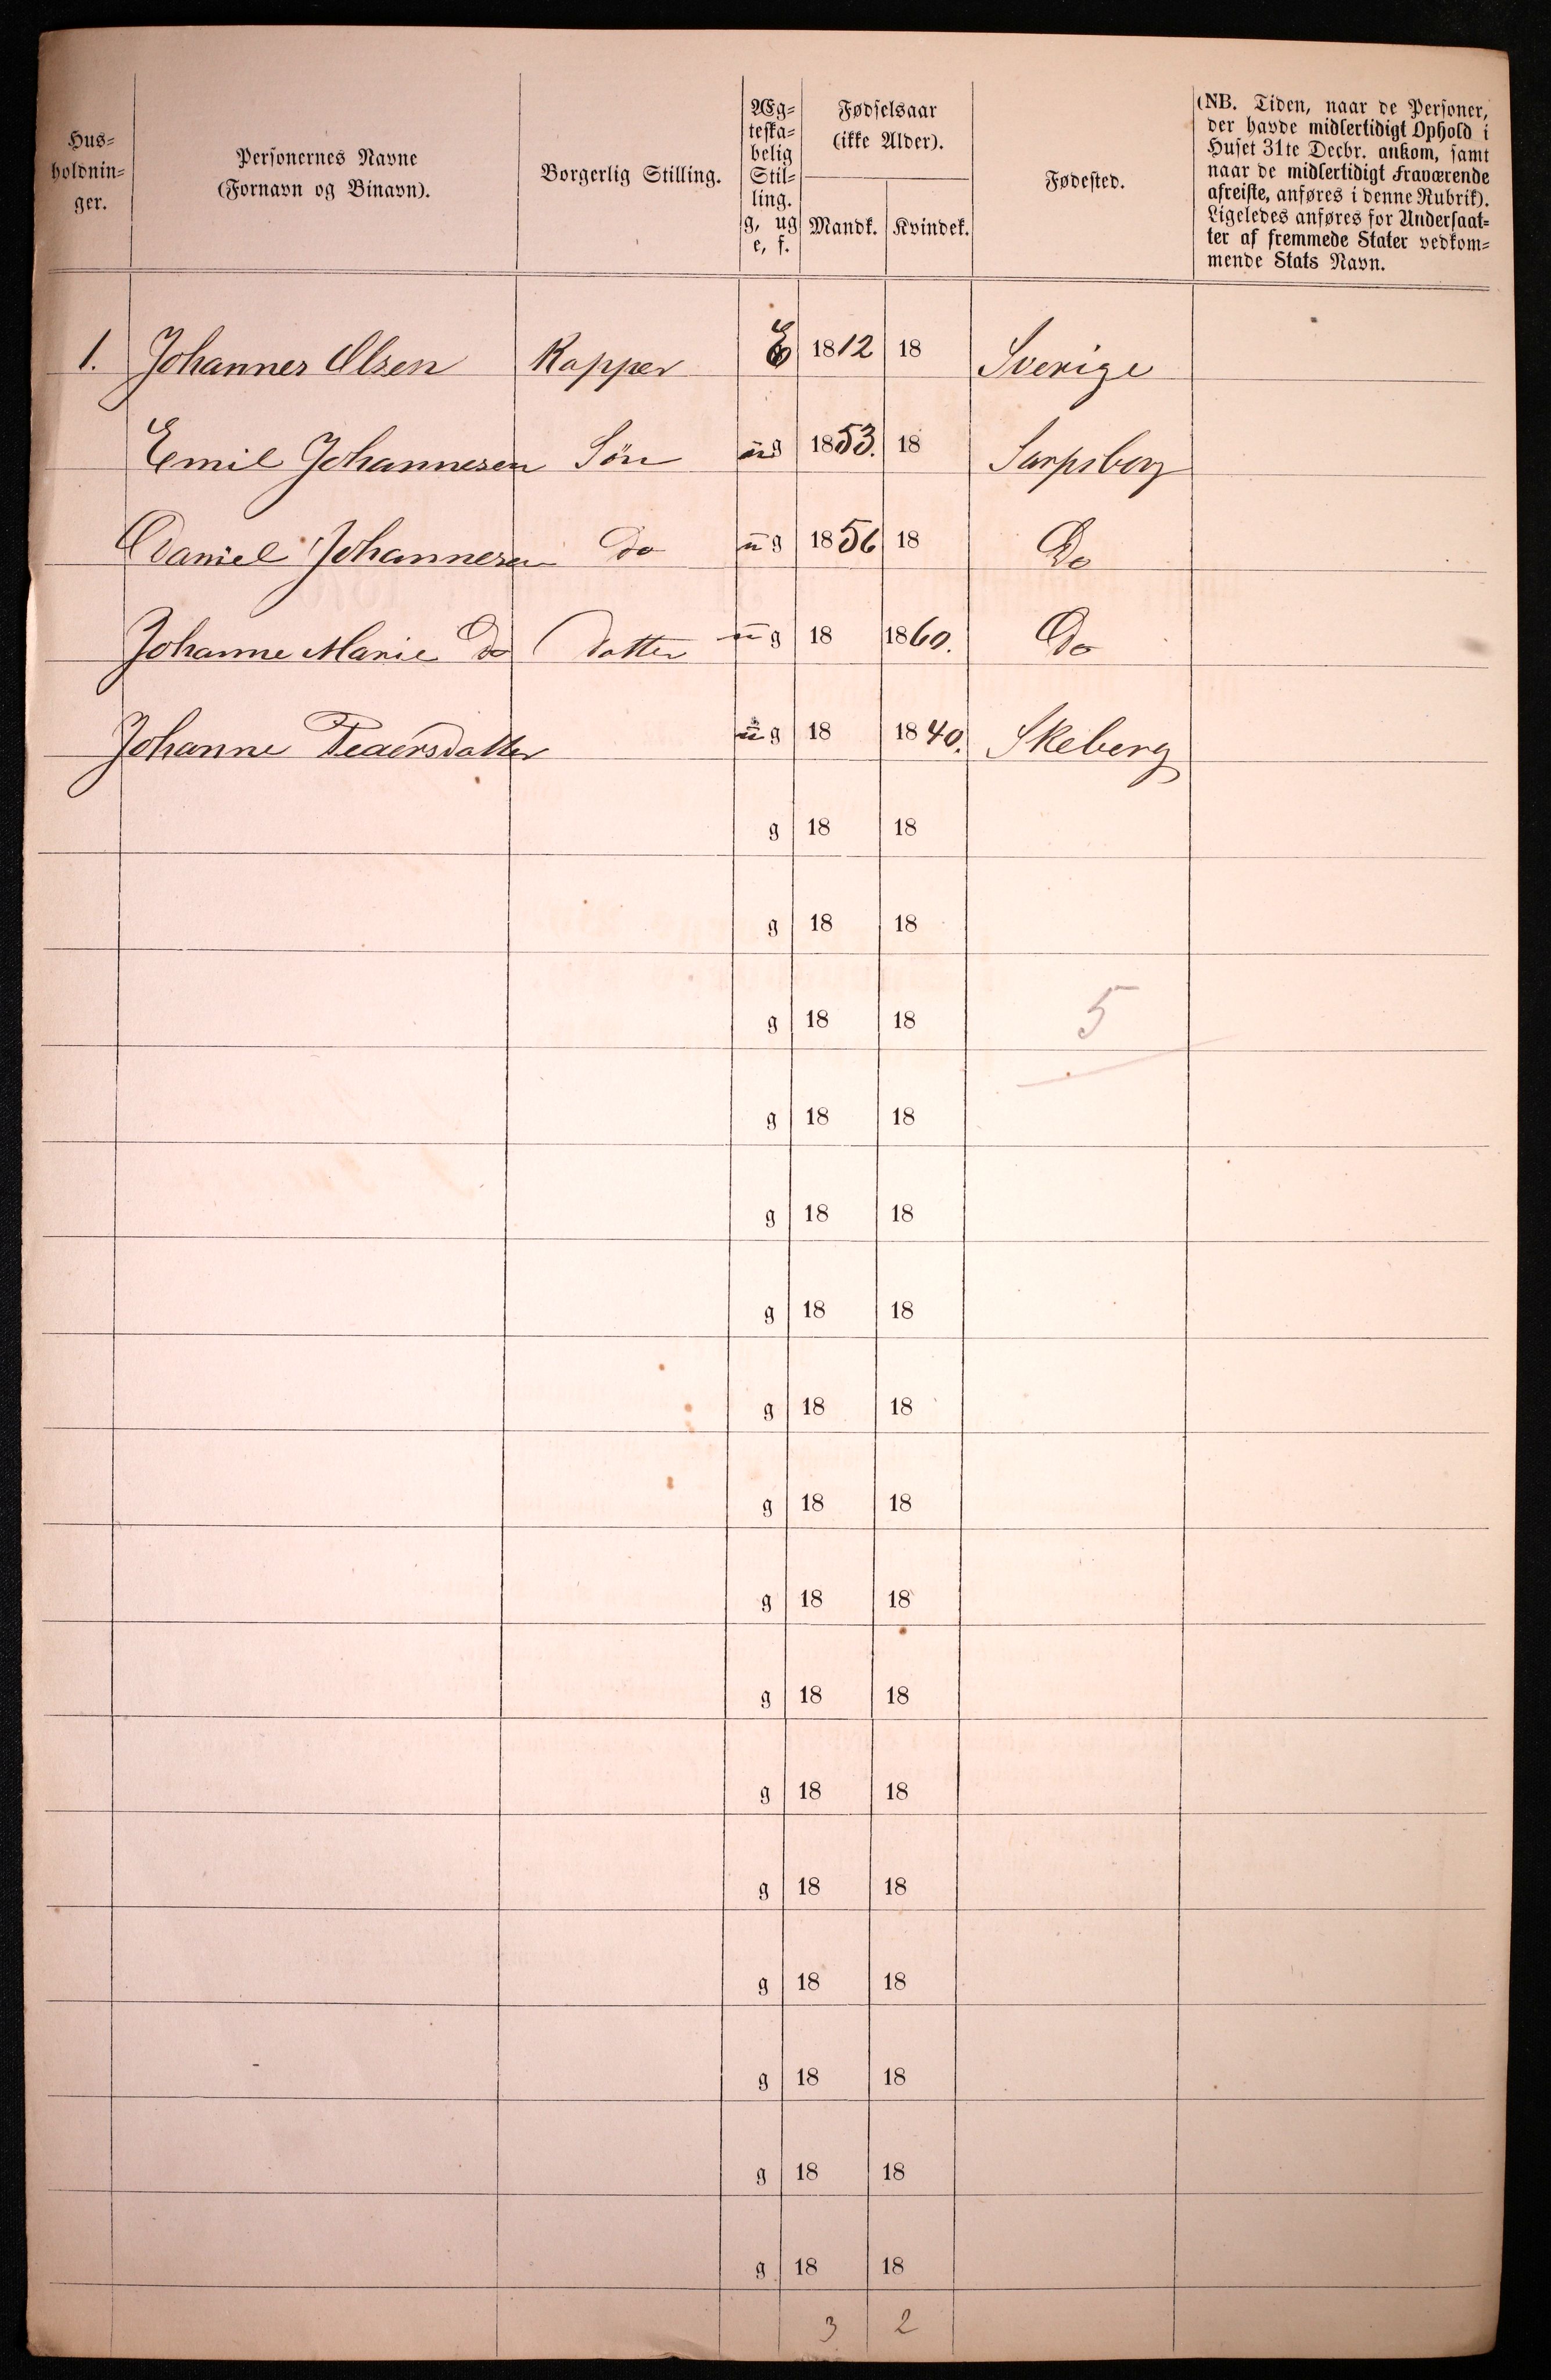 Hus=
holdnin=
ger.
Personernes Navne
(Fornavn og Binavn).
Borgerlig Stilling.
Æg=
teska=
belig
Stil=
ling.
g, ug
e, f.
Fødselsaar
(ikke Alder).
Mandk. Kvindek.
Fødested.
(NB. Tiden, naar de Personer,
der havde midlertidigt Ophold i
Huset 31te Decbr. ankom, samt
naar de midlertidigt Fraværende
afreiste, anføres i denne Rubrik).
Ligeledes anføres for Undersaat=
ter af fremmede Stater vedkom=
mende Stats Navn.
1. Johannes Olsen Kapper E 1812 18 Sverige
Emil Johannesen Sön ug 1853. 18 Sarpsborg
Daniel Johannesen Do ug 1856 18 Do
Johanne Marie Do Datter ug 18 1860. Do
Johanne Pedersdatter ug 18 1840. Skeberg
g 18 18
g 18 18
g 18 18 5
g 18 18
g 18 18
g 18 18
g 18 18
g 18 18
g 18 18
g 18 18
g 18 18
g 18 18
g 18 18
g 18 18
g 18 18
g 18 18
3 2